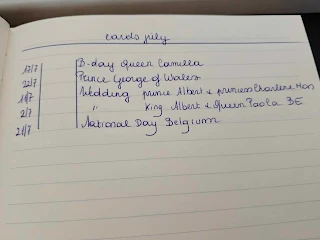 cards july
17/7 B-day Queen Camilla
22/7 Prince George of Wales
1/7 Wedding prince Albert & princess Charlene Mon
2/7 " King Albert & Queen Paola BE
21/7 National Day Belgium